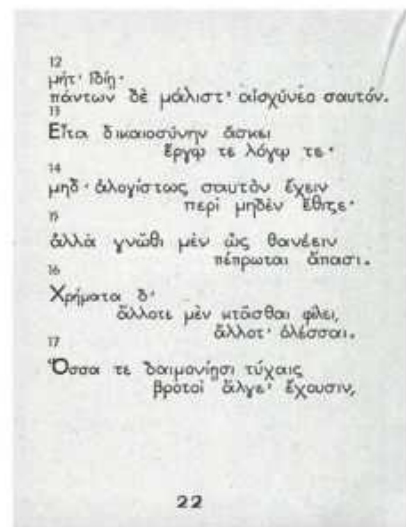 12
μήτ' ἰδίῃ·
πάντων δὲ μάλιστ' αἰσχύνεο σαυτόν.
13
Εἶτα δικαιοσύνην ἄσκει
ἔργῳ τε λόγῳ τε·
14
μηδ' ἀλογίστως σαυτὸν ἔχειν
περὶ μηδὲν ἔθιζε·
15
ἀλλὰ γνῶθι μὲν ὡς θανέειν
πέπρωται ἅπασι.
16
Χρήματα δ'
ἄλλοτε μὲν κτᾶσθαι φίλει,
ἄλλοτ' ὀλέσσαι.
17
Ὅσσα τε δαιμονίῃσι τύχαις
βροτοὶ ἄλγε' ἔχουσιν,
22